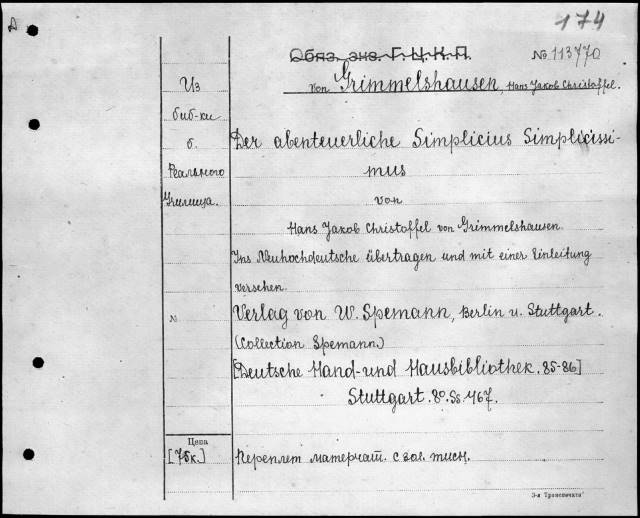 174
Обяз. экз. Г. Ц. К. П.
№ 113770
von Grimmelshausen, Hans Jakob Christoffel.
Из
биб-ки
б.
Реального
Училища.
Der abenteuerliche Simplicius Simplicissi-
mus
von
Hans Jakob Christoffel von Grimmelshausen.
Ins Neuhochdeutsche übertragen und mit einer Einleitung
versehen.
№
Verlag von W. Spemann, Berlin u. Stuttgart.
(Collection Spemann.)
[Deutsche Hand- und Hausbibliothek. 85-86]
Stuttgart. 8º. Ss. 467.
Цена
[75к.]
Переплет матерчат. с зол. тисн.
3-я Транспечати